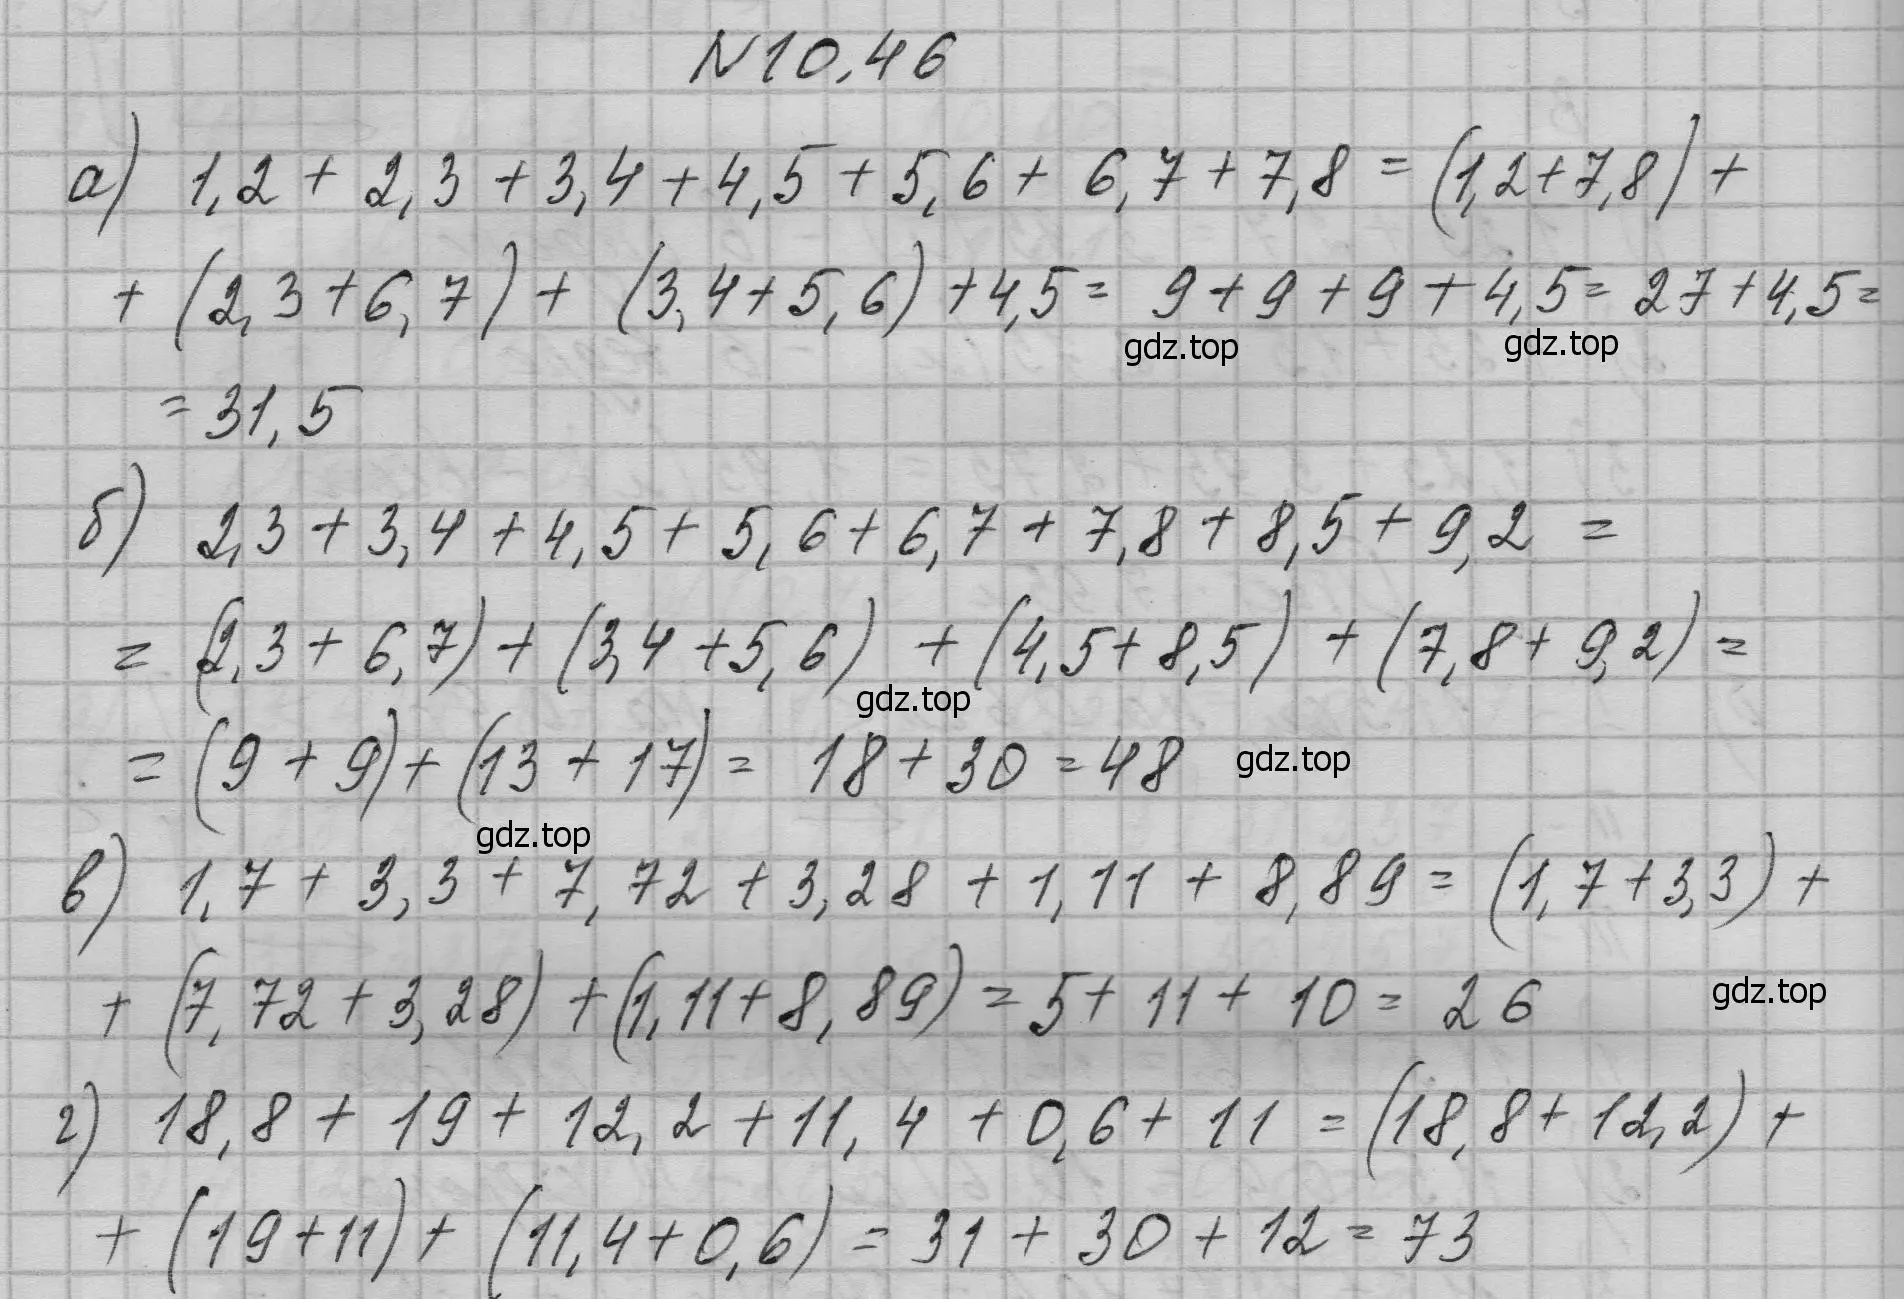 N10.46
а) 1,2 + 2,3 + 3,4 + 4,5 + 5,6 + 6,7 + 7,8 = (1,2+7,8) +
+ (2,3+6,7) + (3,4+5,6) +4,5= 9+9+9+4,5= 27+4,5=
gdz.top gdz.top
= 31,5
б) 2,3 + 3,4 + 4,5 + 5,6 + 6,7 + 7,8 + 8,5 + 9,2 =
= (2,3 + 6,7) + (3,4 +5,6) + (4,5+8,5) + (7,8+ 9,2) =
gdz.top
= (9 + 9) + (13 + 17) = 18 + 30 = 48 gdz.top
gdz.top
в) 1,7 + 3,3 + 7,72 + 3,28 + 1,11 + 8,89 = (1,7+3,3) +
+ (7,72 + 3,28) + (1,11+8,89) = 5+ 11+ 10= 26 gdz.top
г) 18,8 + 19 + 12,2 + 11,4 + 0,6 + 11 = (18,8+ 12,2) +
+ (19+11) + (11,4+0,6) = 31 + 30 + 12= 73